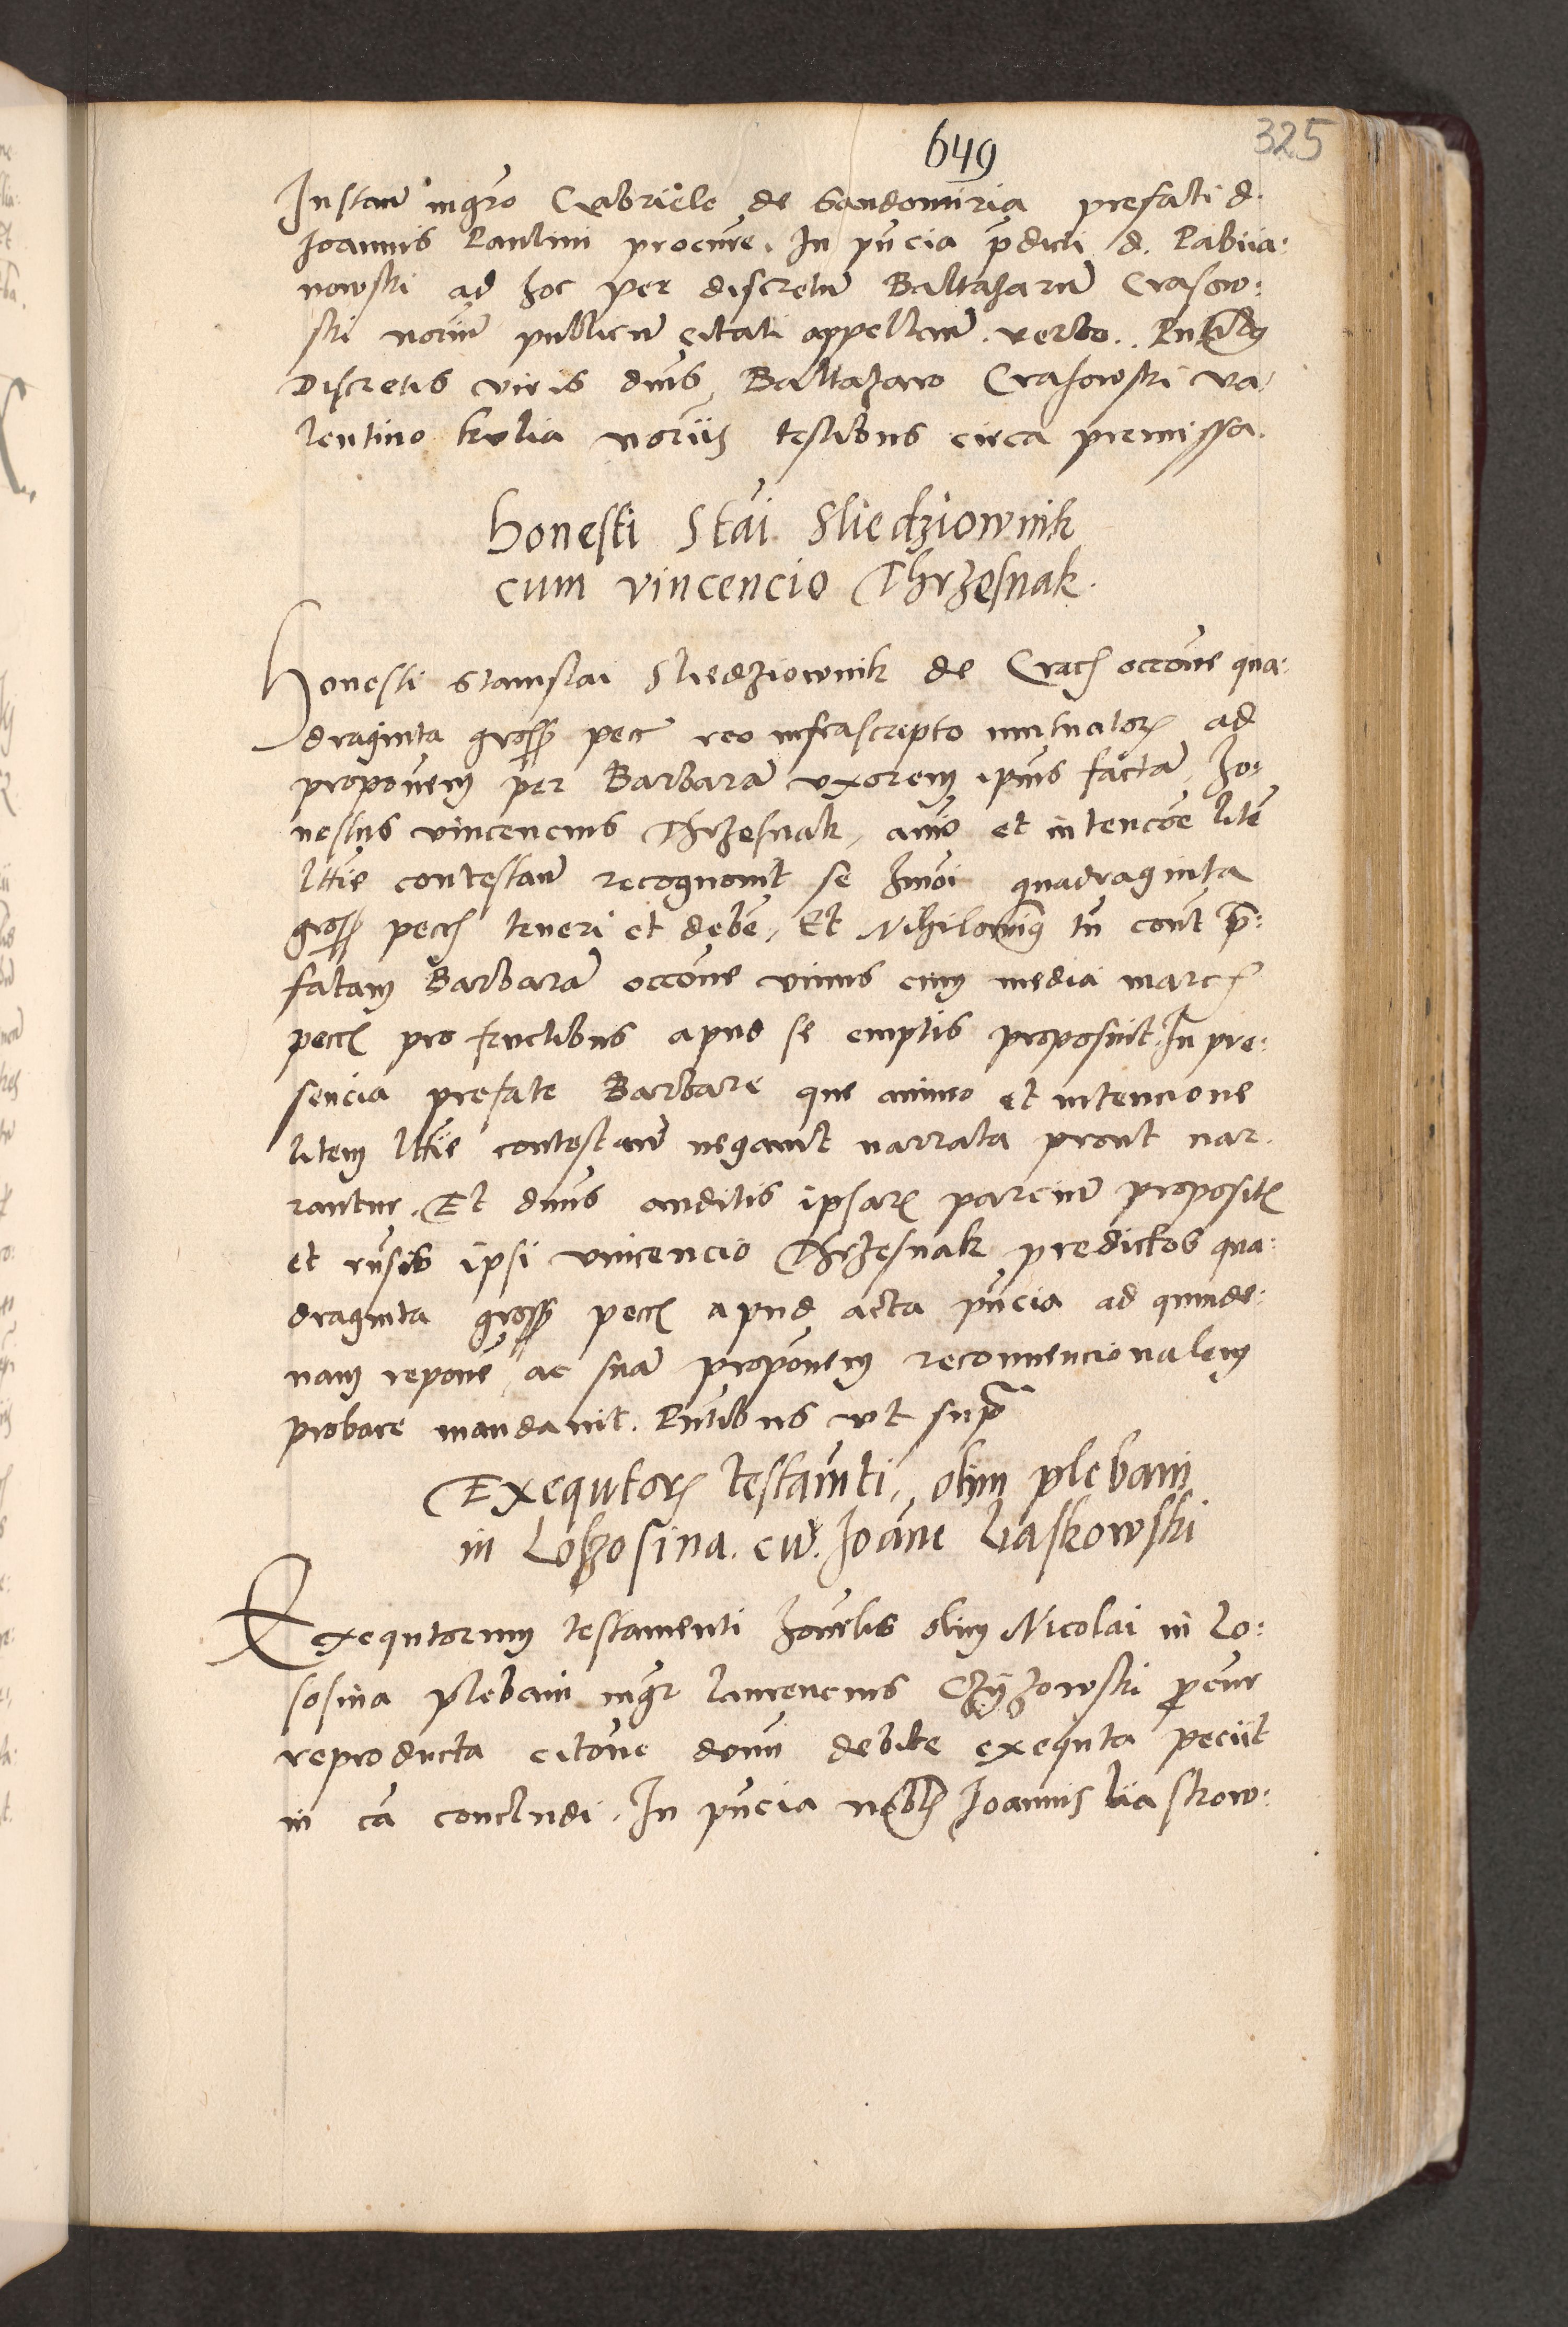 649
325
Instan mgro Gabriele de Sandomiria prefati d.
Joannis Paulini procure. In pñcia pdicti d. Pabiia:
nowski ad hoc per discretũ Baltazarũ Crasow:
ski noriũ publicũ citati appellanẽ. verbo..
Discretis viris dnis Baltazaro Crasowski va
lentino kulia noriis testibus circa premissa.
Honesti Stãi Sliedziownik
cum vincencio Thrzesnak.
Honesti Stanislai Sliedziownik de Crac occoñe qua:
draginta gross pecc reo infrascripto mutuator ad
propoñem per Barbarã uxorem ipius factã, ho:
nestus vincencius Thrzesnak, aiõ et intencõe litẽ
lttie contestan recognovit se hmõi quadraginta
gross pecc teneri et debẽ, Et Nihilominus tñ cont pre:
fatam Barbarã occoñe unius cum media marc
pecc pro fructibus apud se emptis proposuit. In pre:
sencia prefate Barbare que animo et intencione
litem lttie contestanẽ negavit narrata prout nar
rantur. Et dnus auditis ipsar parciũ proposit
et rñsis ipsi vincencio Thrzesnak predictos qua:
draginta gross pecc apud acta pñcia ad quinde:
nam reponẽ ac suã propoñem reconvencionalem
probare mandavit. Pñtibus ut supra
Exequtor testamti, olim plebani
in Loszosina. cu. Joãne Liaskowski
Exequtorum testamenti honelis olim Nicolai in Lo:
sosina plebani mgr laurencius Czyzowski pcur
reproducta citoñe domi debite exequta peciit
in cã concludi. In pñcia nobl Joannis liaskow: